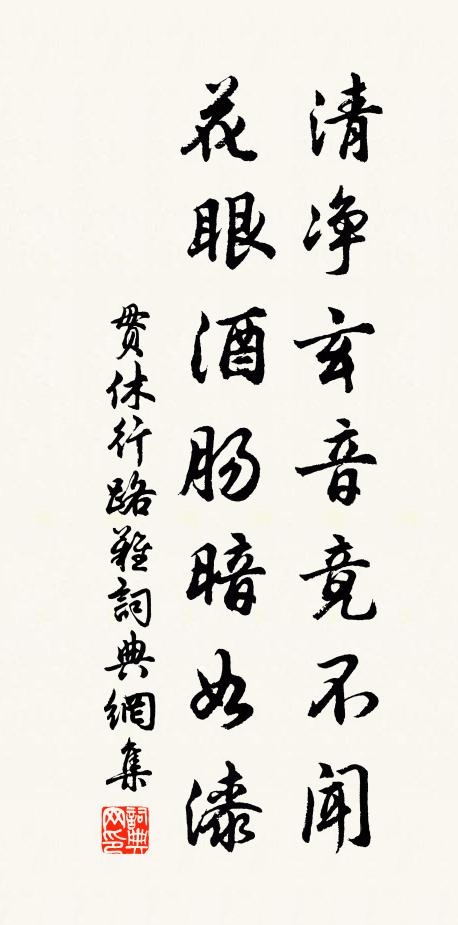 清净玄音竟不闻
花眼酒肠暗如漆
貫休行路難詞典網集
詞典
网印